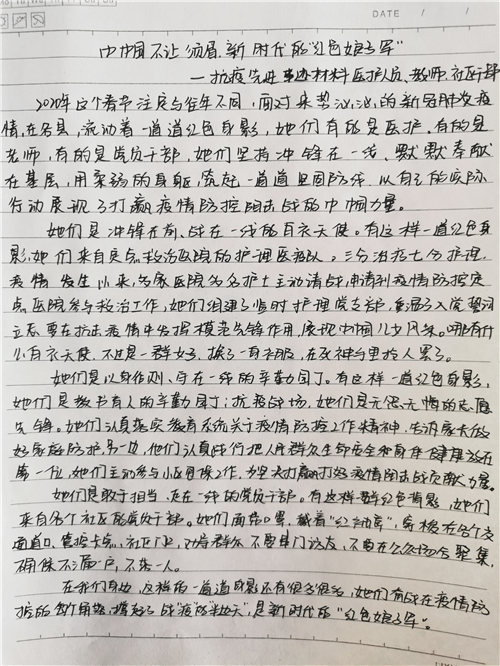 DATE / /
巾帼不让须眉,新时代的"红色娘子军"
—抗疫先进事迹材料医护人员、教师、社区干部
2020年这个春节注定与往年不同,面对来势汹汹的新冠肺炎疫
情,在各县,流动着一道道红色身影,她们有的是医护,有的是
老师,有的是党员干部,她们坚持冲锋在一线、默默奉献
在基层,用柔弱的身躯,筑起一道道坚固防线,以自己的实际
行动展现了打赢疫情防控阻击战的巾帼力量。
她们是冲锋在前、战在一线的白衣天使。有这样一道红色身
影,她们来自定点救治医院的护理医疗队。三分治疗七分护理,
疫情发生以来,多家医院多名护士主动请战,申请到疫情防控定
点医院参与救治工作,她们组建了临时护理党支部,重温了入党誓词
立志要在抗击疫情中发挥模范先锋作用,展现巾帼儿女风采。哪有什
么白衣天使,不过是一群女子,换了一身衣服,在死神手里抢人罢了。
她们是以身作则、守在一线的辛勤园丁。有这样一道红色身影,
她们是教书育人的辛勤园丁;抗疫战场,她们是无怨无悔的志愿
先锋。她们认真落实教育系统关于疫情防控工作精神,告诉家长做
好家庭防护,另一边,他们认真践行把人民群众生命安全和身体健康放在
第一位,她们主动参与小区值探工作,为坚决打赢打好疫情阻击战贡献力量。
她们是敢于担当、走在一线的党员干部。有这样一群红色背影,她们
来自各个社区的党员干部。她们面带口罩,戴着"红袖章",穿梭在各个交
通道口、管控卡点、社区门口,劝导群众不要串门访友,不要在公众场合聚集,
确保不漏一户,不落一人。
在我们身边,这样的一道道身影还有很多很多,她们奋战在疫情防
控的每个角落,撑起了战"疫"的半边天",是新时代的"红色娘子军"。